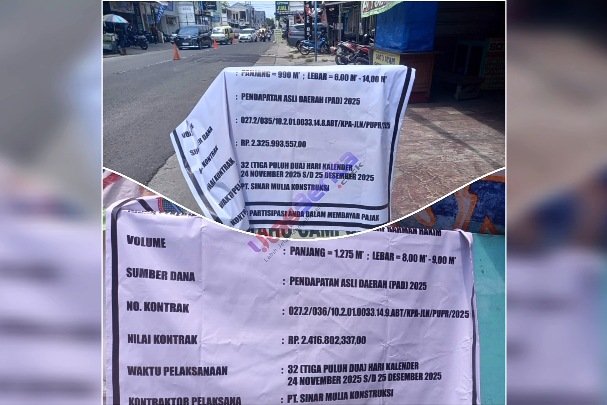 : PANJANG = 990 M' ; LEBAR = 6.00 M' - 14,00 M'
: PENDAPATAN ASLI DAERAH (PAD) 2025
SUMBER DANA
: 027.2/035/10.2.01.0033.14.8.ABT/KPA-JLN/PUPR/2025
KONTRAK
: RP. 2.325.993.557,00
NILAI KONTRAK
: 32 (TIGA PULUH DUA) HARI KALENDER
24 NOVEMBER 2025 S/D 25 DESEMBER 2025
WAKTU
: PT. SINAR MULIA KONSTRUKSI
PARTISIPASI ANDA DALAM MEMBAYAR PAJAK
VOLUME : PANJANG = 1.275 M' ; LEBAR = 8,00 M' - 9.00 M'
SUMBER DANA : PENDAPATAN ASLI DAERAH (PAD) 2025
NO. KONTRAK : 027.2/036/10.2.01.0033.14.9.ABT/KPA-JLN/PUPR/2025
NILAI KONTRAK : RP. 2.416.802,337,00
WAKTU PELAKSANAAN : 32 (TIGA PULUH DUA) HARI KALENDER
24 NOVEMBER 2025 S/D 25 DESEMBER 2025
KONTRAKTOR PELAKSANA : PT. SINAR MULIA KONSTRUKSI